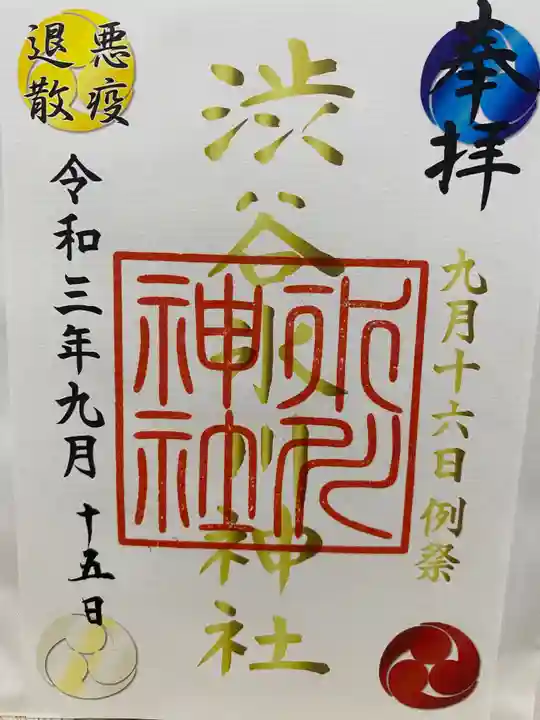 奉拝
九月十六日例祭
渋谷氷川神社
氷川神社
悪疫
退散
令和三年九月十五日